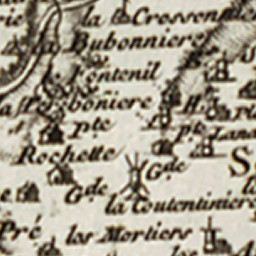 la Crossonniere
la Bubonniere
le Fontenil
la Persboniere
pte
pte
Land
Rochette
Gde
Gde
la Coutentiniere
Pré
les Mortiers
les